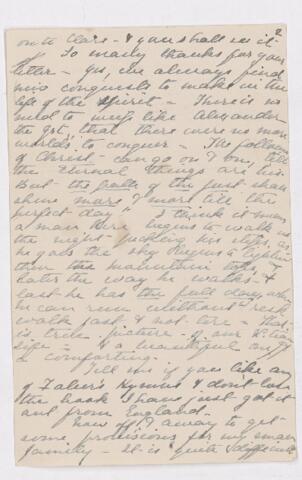 2
on to Clara - & you shall see it -
So many thanks for your
letter - Yes, we always find
new conquests to make in the
life of the Spirit - There is no
need to weep like Alexander
the Grt, that there were no more
worlds to conquer - The follower
of Christ - can go on & on, till
the Eternal Things are his
But - the path of the just shall
shine more & more till the
perfect day" I think it means
a man here begins to walk in
the night - picking his steps, as
he goes the sky begins to lighten
then the mountain tops, &
later the way he walks - &
last - he has the full day, when
he can run without risk
walk fast & not tire - that
is true picture - of our
life - & a beautiful one
& comforting.
Tell me if you like any
of Faber's Hymns & don't lose
the book I have just got it
out from England.
Now off I away to get
some provisions for my small
family - It is quite difficult